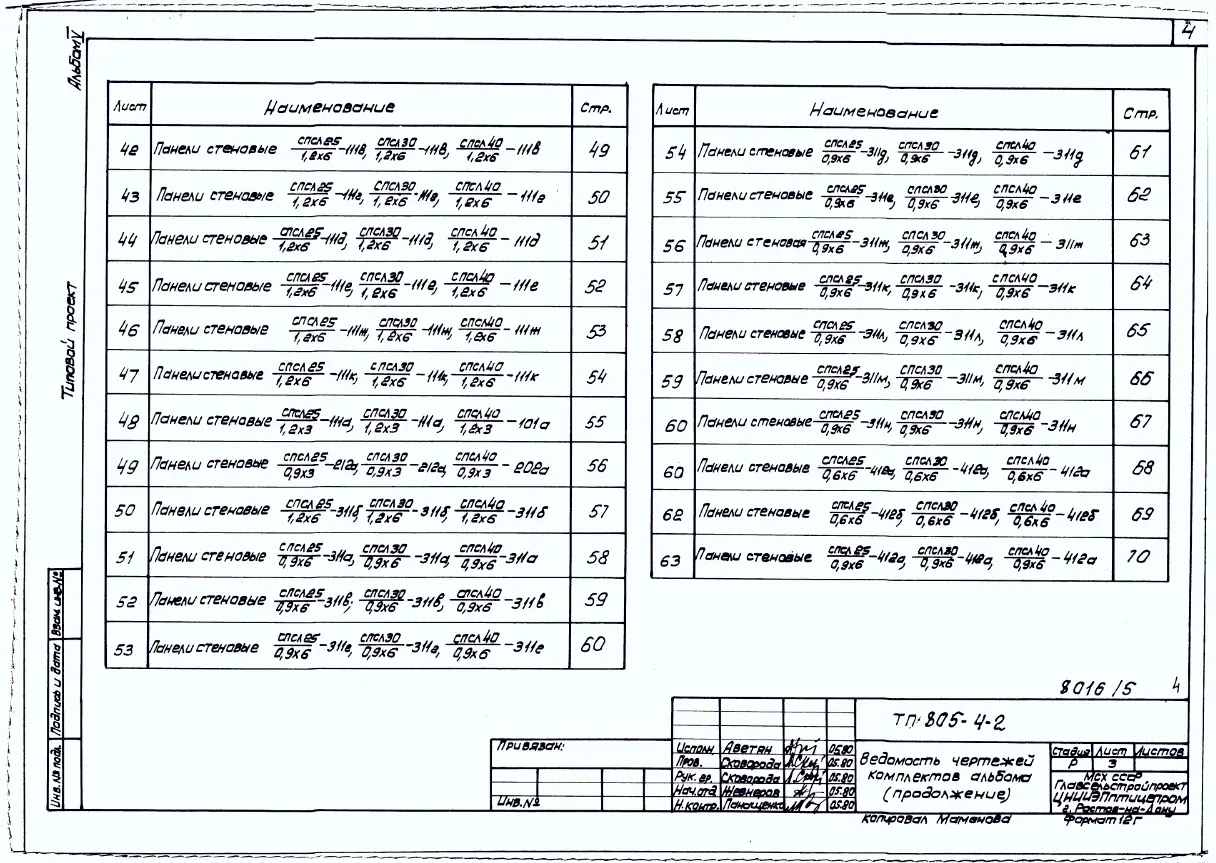 4
Альбом V
Типовой проект
Лист Наименование Стр.
42 Панели стеновые спсл25/1,2х6-111в, спсл30/1,2х6-111в, спсл40/1,2х6-111в 49
43 Панели стеновые спсл25/1,2х6-111г, спсл30/1,2х6-111г, спсл40/1,2х6-111г 50
44 Панели стеновые спсл25/1,2х6-111д, спсл30/1,2х6-111д, спсл40/1,2х6-111д 51
45 Панели стеновые спсл25/1,2х6-111е, спсл30/1,2х6-111е, спсл40/1,2х6-111е 52
46 Панели стеновые спсл25/1,2х6-111ж, спсл30/1,2х6-111ж, спсл40/1,2х6-111ж 53
47 Панели стеновые спсл25/1,2х6-111к, спсл30/1,2х6-111к, спсл40/1,2х6-111к 54
48 Панели стеновые спсл25/1,2х3-111а, спсл30/1,2х3-111а, спсл40/1,2х3-101а 55
49 Панели стеновые спсл25/0,9х3-212а, спсл30/0,9х3-212а, спсл40/0,9х3-202а 56
50 Панели стеновые спсл25/1,2х6-311б, спсл30/1,2х6-311б, спсл40/1,2х6-311б 57
51 Панели стеновые спсл25/0,9х6-311а, спсл30/0,9х6-311а, спсл40/0,9х6-311а 58
52 Панели стеновые спсл25/0,9х6-311в, спсл30/0,9х6-311в, спсл40/0,9х6-311в 59
53 Панели стеновые спсл25/0,9х6-311г, спсл30/0,9х6-311г, спсл40/0,9х6-311г 60
Лист Наименование Стр.
54 Панели стеновые спсл25/0,9х6-311д, спсл30/0,9х6-311д, спсл40/0,9х6-311д 61
55 Панели стеновые спсл25/0,9х6-311е, спсл30/0,9х6-311е, спсл40/0,9х6-311е 62
56 Панели стеновая спсл25/0,9х6-311ж, спсл30/0,9х6-311ж, спсл40/0,9х6-311ж 63
57 Панели стеновые спсл25/0,9х6-311к, спсл30/0,9х6-311к, спсл40/0,9х6-311к 64
58 Панели стеновые спсл25/0,9х6-311л, спсл30/0,9х6-311л, спсл40/0,9х6-311л 65
59 Панели стеновые спсл25/0,9х6-311м, спсл30/0,9х6-311м, спсл40/0,9х6-311м 66
60 Панели стеновые спсл25/0,9х6-311н, спсл30/0,9х6-311н, спсл40/0,9х6-311н 67
60 Панели стеновые спсл25/0,6х6-412а, спсл30/0,6х6-412а, спсл40/0,6х6-412а 68
62 Панели стеновые спсл25/0,6х6-412б, спсл30/0,6х6-412б, спсл40/0,6х6-412б 69
63 Панели стеновые спсл25/0,9х6-412а, спсл30/0,9х6-412а, спсл40/0,9х6-412а 70
8016/5 4
ТП 805-4-2
Привязан:
Инв.№
Исполн. Аветян 05.80
Пров. Сковорода 05.80
Рук. гр. Сковорода 05.80
Нач.отд. Жевнеров 05.80
Н.контр. Панащенко 05.80
Ведомость чертежей
комплектов альбома
(продолжение)
Стадия Лист Листов
Р 3
Мсх ссср
Главсельстройпроект
ЦНИИЭПптицепром
г. Ростов-на-Дону
Копировал Маманова Формат 12г
Взам.инв.№
Подпись и дата
Инв.№ подл.